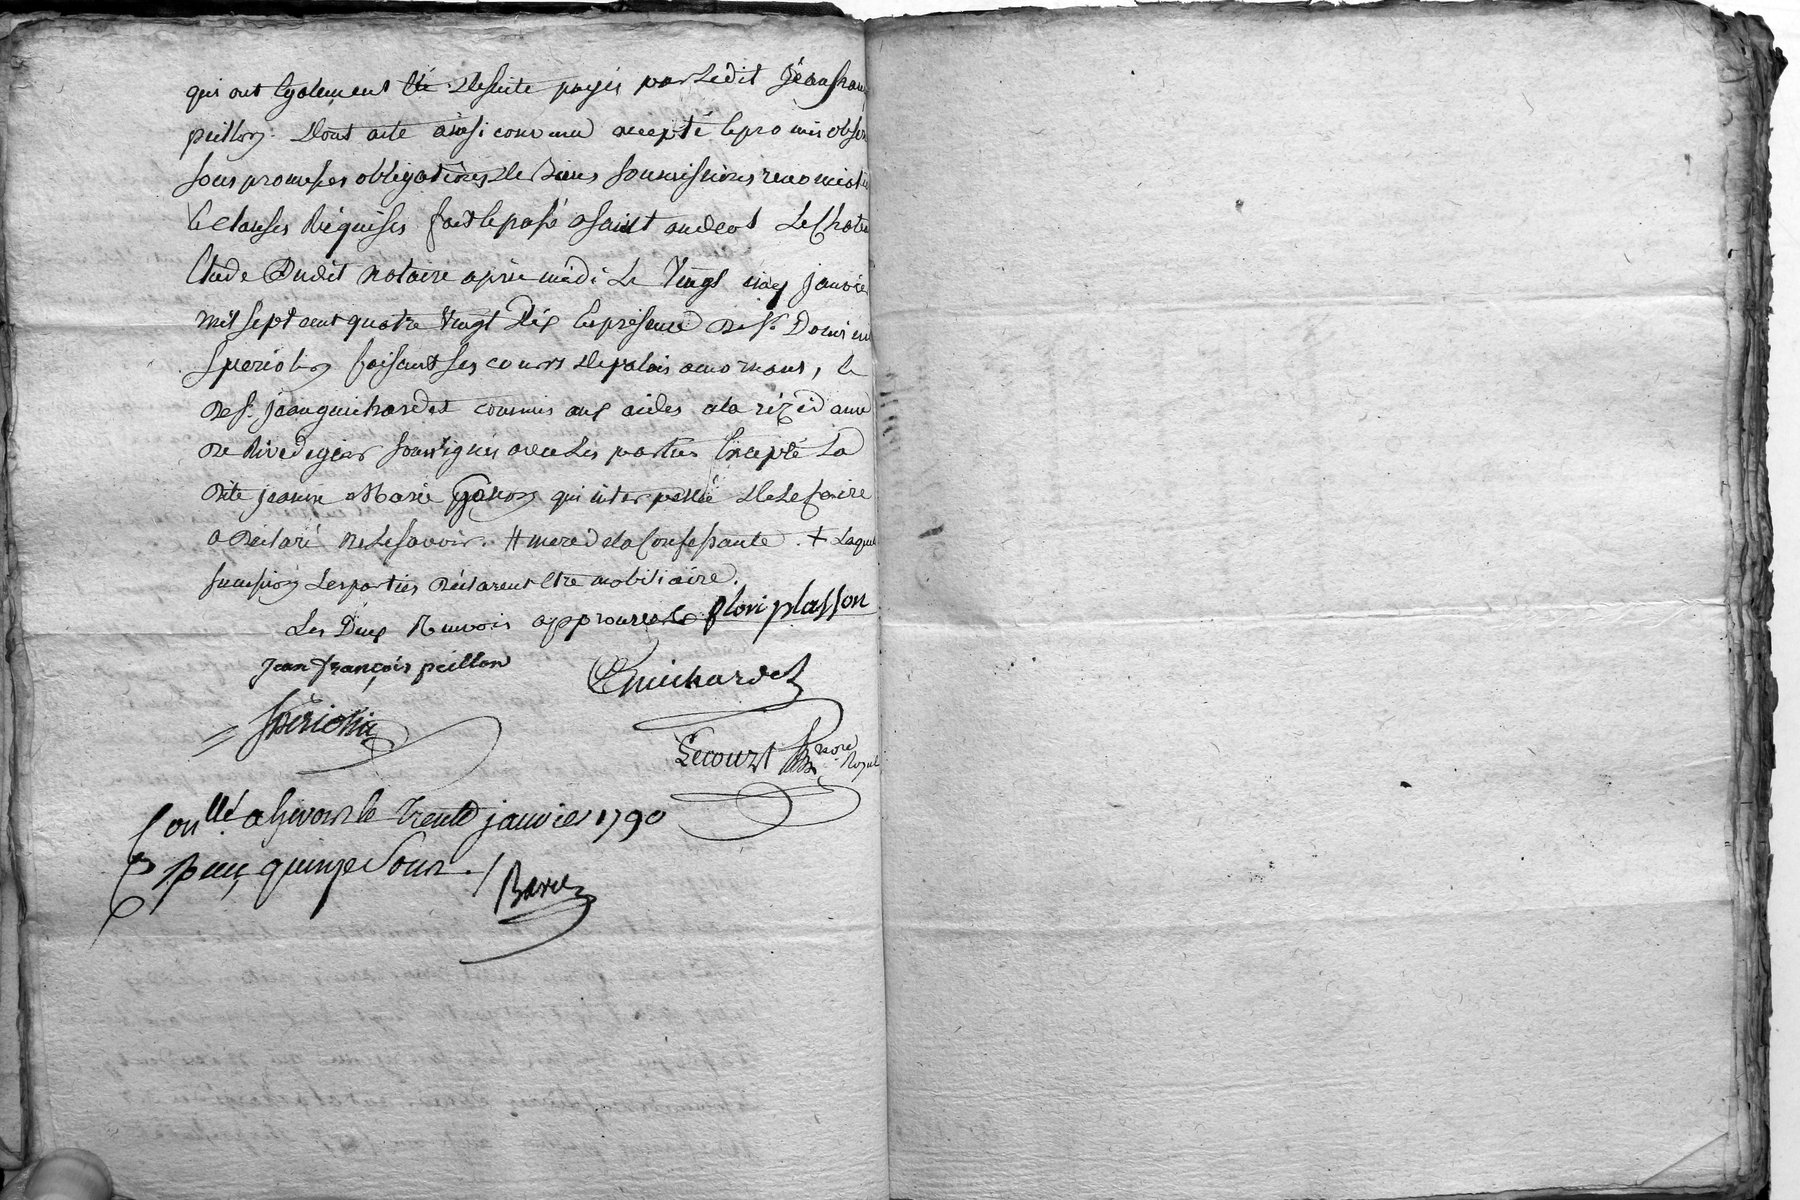 qui ont Egalement été desuite payés par Ledit Jean fran
peillon. Dont acte ainsi convenu accepté & promis obser
sous promesses obligations de biens soumissions renonciatio
& clauses Réquises fait & passé a saint andeol Le Chate
Etude dudit notaire après midi Le Vingt cinq Janvier
mil sept cent quatre Vingt dix En présence de sr. Dominique
Speriolin faisant ses cours de palais a nos mans, &
de sr. jean guichardet commis aux aides a la rézidance
de Rivedegier soussignés avec Les parties Excepté La
dite jeanne Marie qui interpellé de Le faire
a déclaré ne Le savoir. # mere de la Confessante. + Laquel
Les parties déclarent Etre mobiliaire.
Les Deux Renvois approuves flori plasson
Jean françois peillon
Guichardet
Lecourt nore Royal
Conllé a Givors le trente janvier 1790
quinze Sous. /